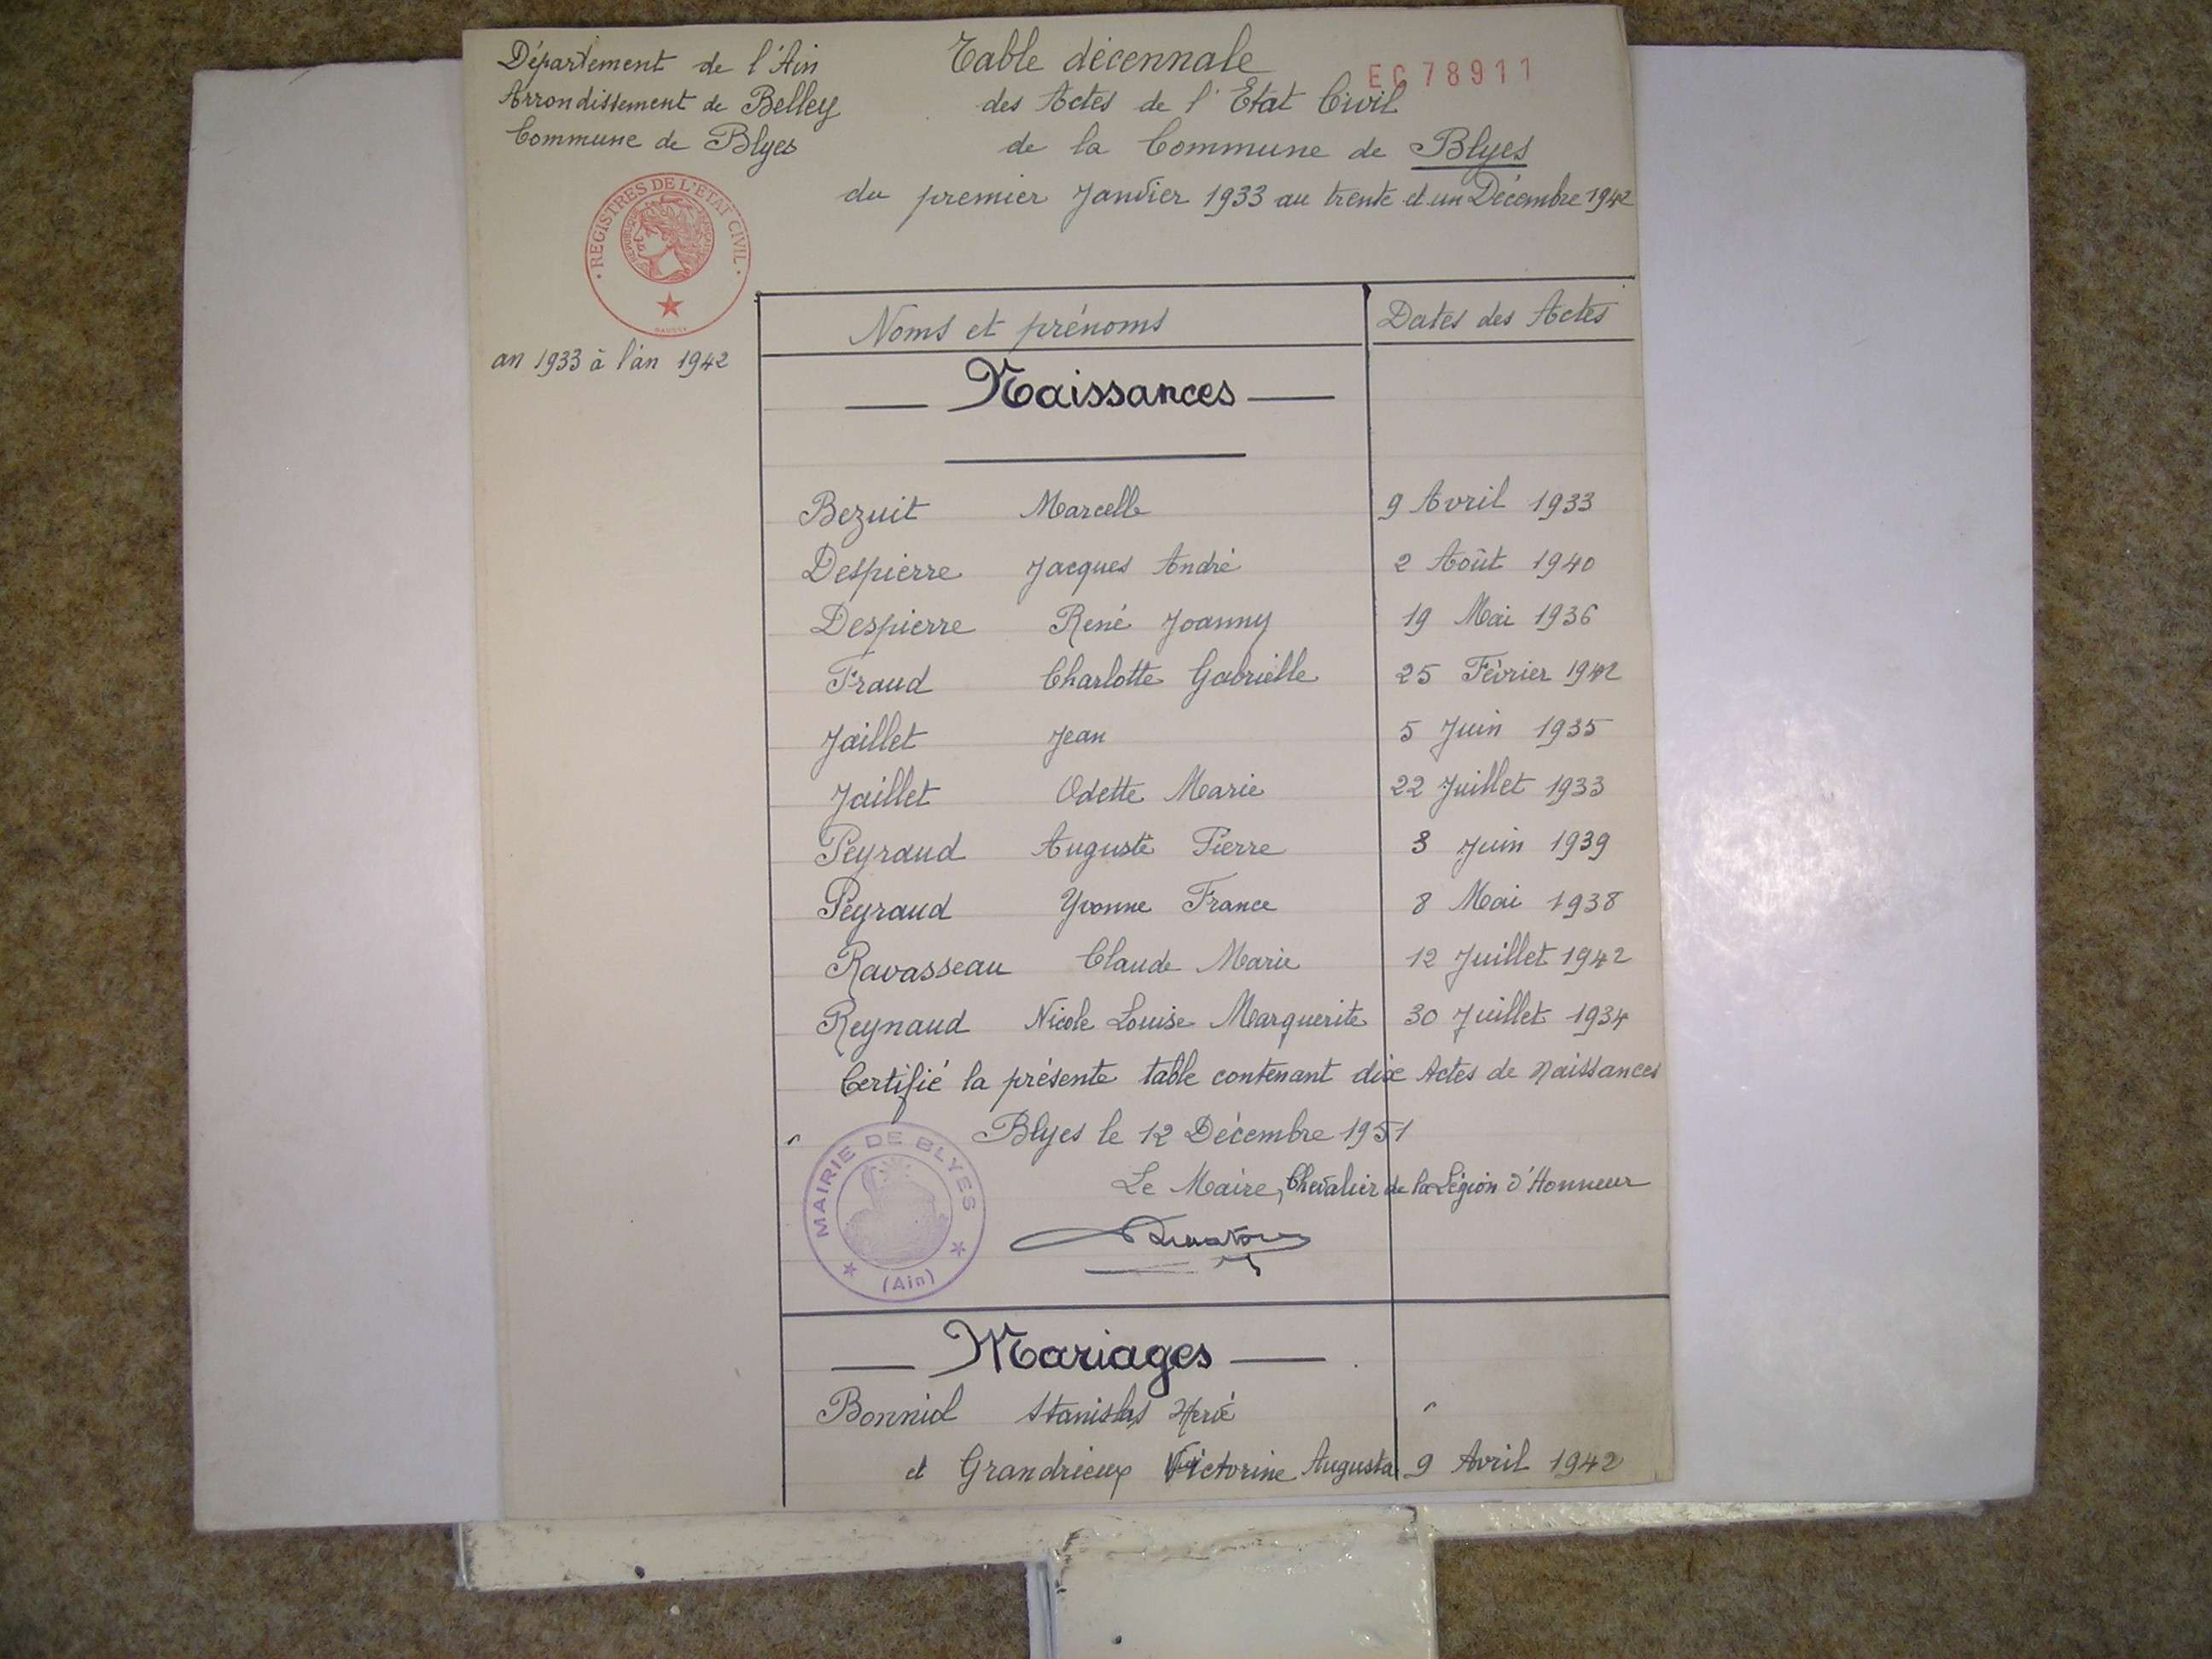 Département de l'Ain
Arrondissement de Belley
Commune de Blyes
Table décennale
EC 78911
des Actes de l'Etat Civil
de la Commune de Blyes
du premier Janvier 1933 au trente et un Décembre 1942
· REGISTRES DE L'ETAT CIVIL ·
REPUBLIQUE FRANCAISE
an 1933 à l'an 1942
Noms et prénoms Dates des Actes
Naissances
Bezuit Marcelle 9 Avril 1933
Despierre Jacques André 2 Août 1940
Despierre René Joanny 19 Mai 1936
Fraud Charlotte Gabrielle 25 Février 1942
Jaillet Jean 5 Juin 1935
Jaillet Odette Marie 22 Juillet 1933
Peyraud Auguste Pierre 3 Juin 1939
Peyraud Yvonne France 8 Mai 1938
Ravasseau Claude Marie 12 Juillet 1942
Reynaud Nicole Louise Marguerite 30 Juillet 1934
Certifié la présente table contenant dix Actes de Naissances
Blyes le 12 Décembre 1951
Le Maire, Chevalier de la Légion d'Honneur
MAIRIE DE BLYES
(Ain)
Mariages
Bonniol Stanislas Hervé
et Grandrieux Victorine Augusta 9 Avril 1942